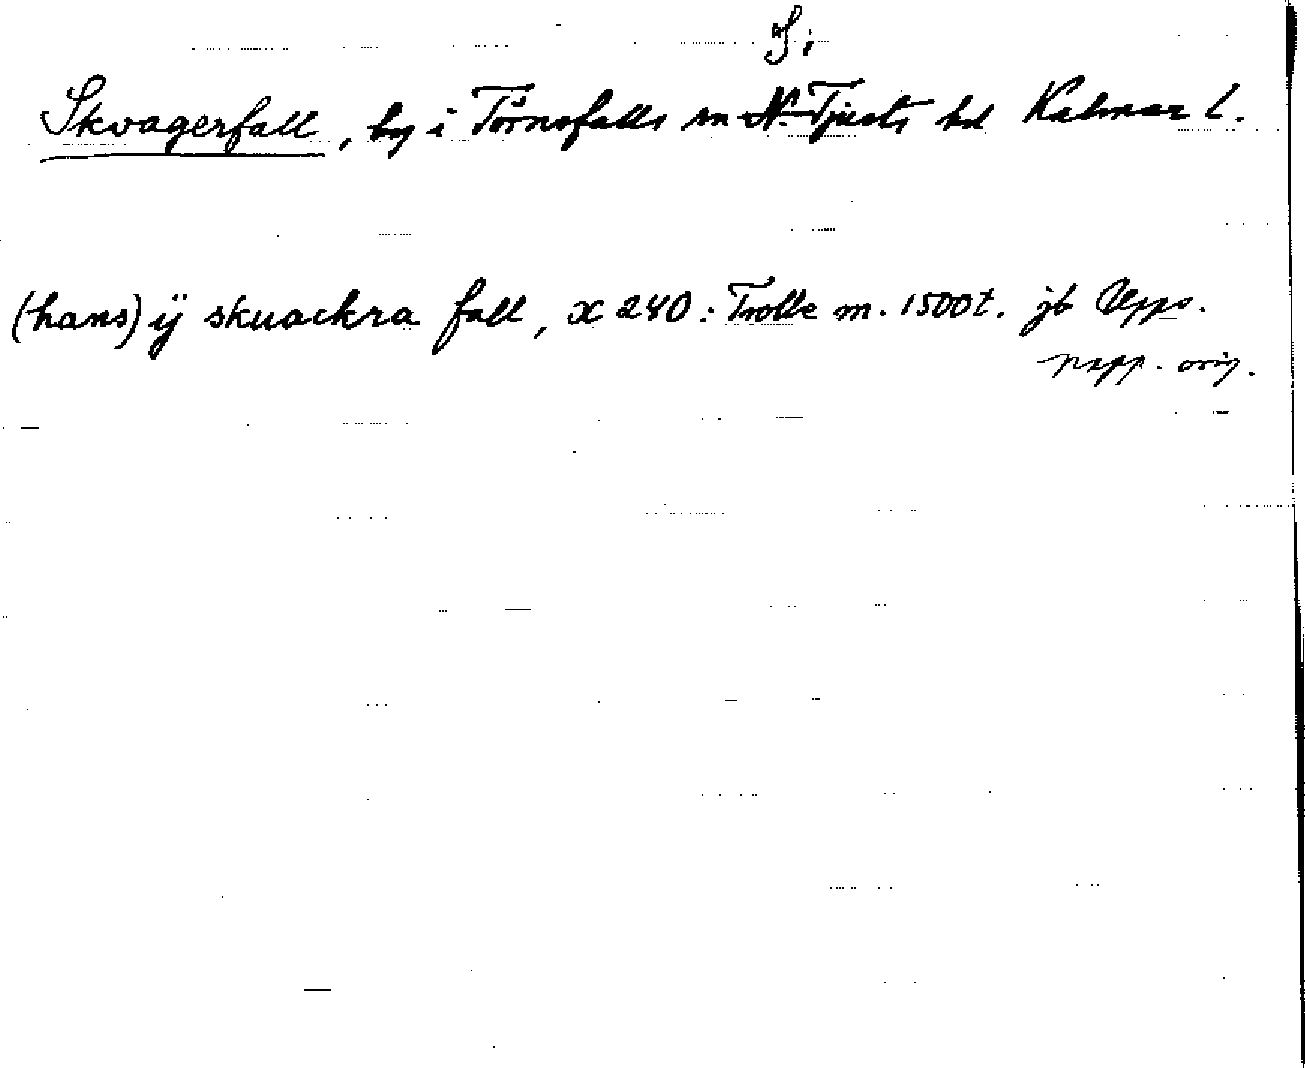 S.
Skvagerfall, by i Törnsfalls sn N. Tjusts hd Kalmar l.
(hans) ÿ skuackra fall, x 240: Trolle m. 1500t. jb Upps.
papp. orig.